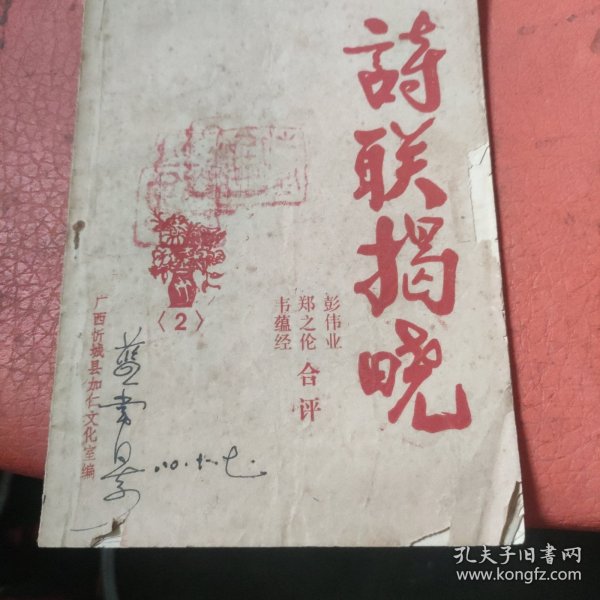 詩联揭晓
彭伟业
郑之伦 合评
韦蕴经
〈2〉
广西忻城县加仁文化室编
孔夫子旧书网
www.kongfz.com